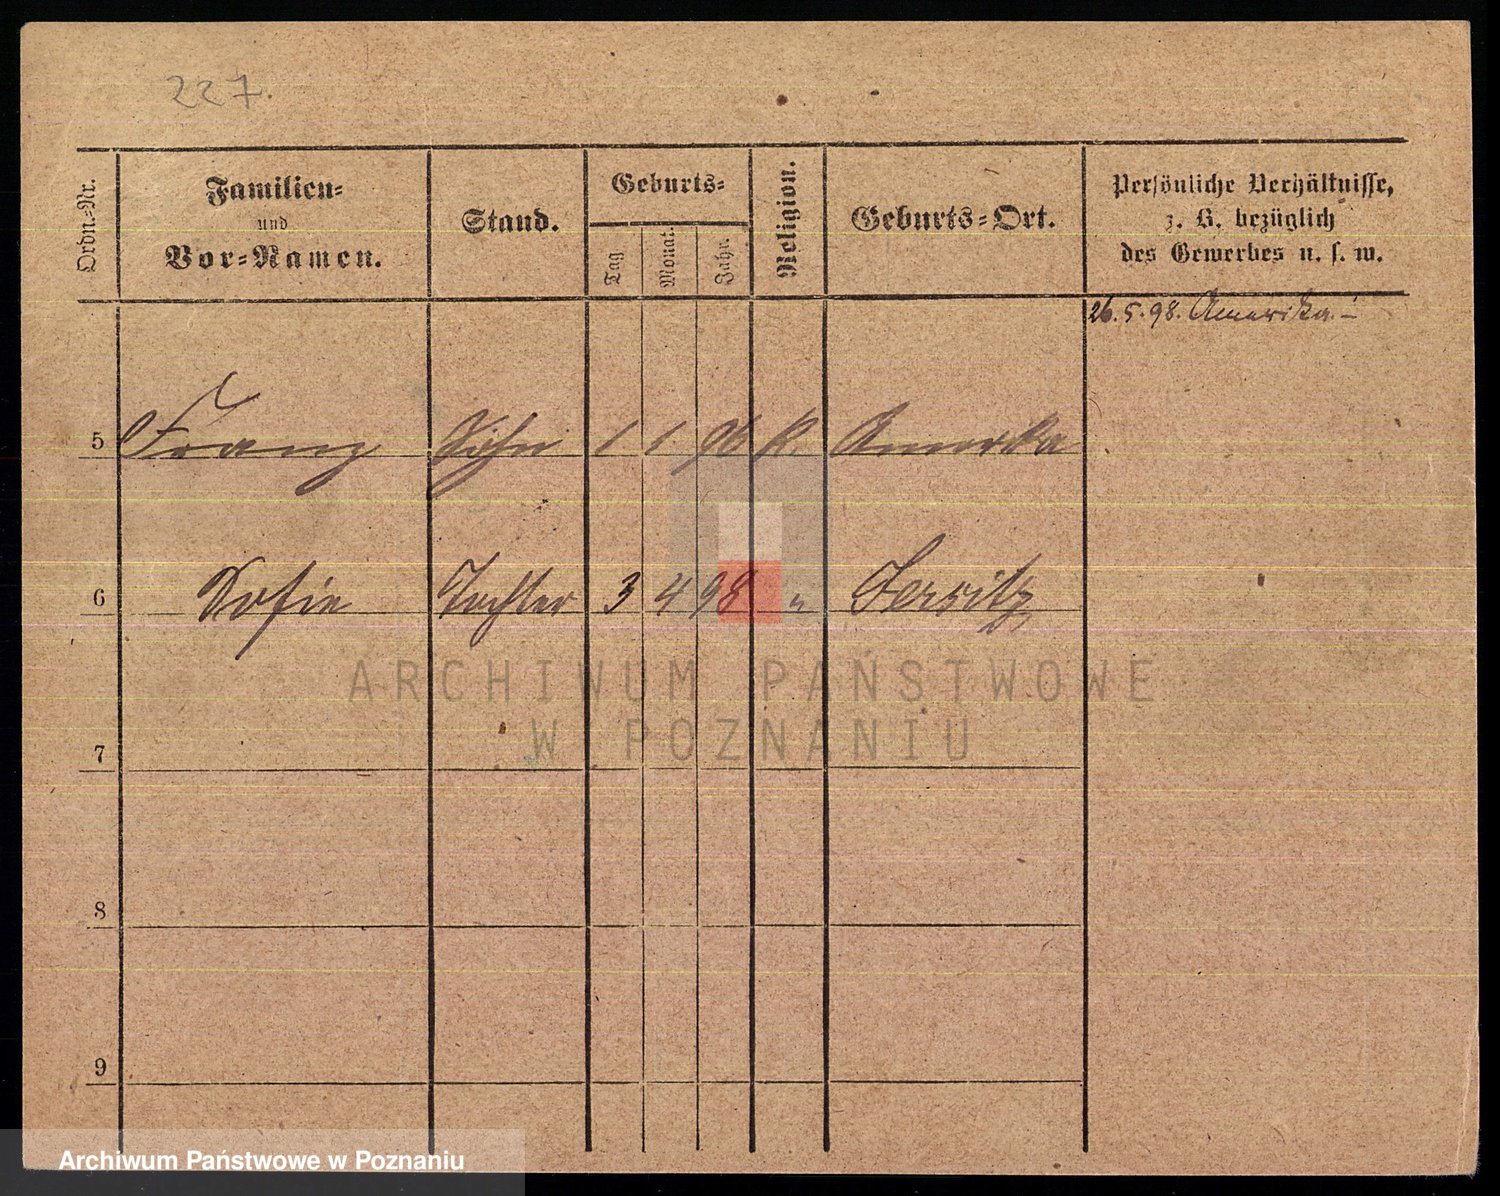 227.
Ordn.=Nr.
Familien=
und
Vor=Namen.
Stand.
Geburts=
Tag
Monat.
Jahr.
Religion.
Geburts=Ort.
Persönliche Verhältnisse,
z. B. bezüglich
des Gewerbes u. s. w.
26.5.98. Amerika.–
5 Franz Sohn 1 1 96 k. Amerika
6 Sofie Tochter 3 4 98 " Jersitz
ARCHIWUM PAŃSTWOWE
W POZNANIU
7
8
9
Archiwum Państwowe w Poznaniu